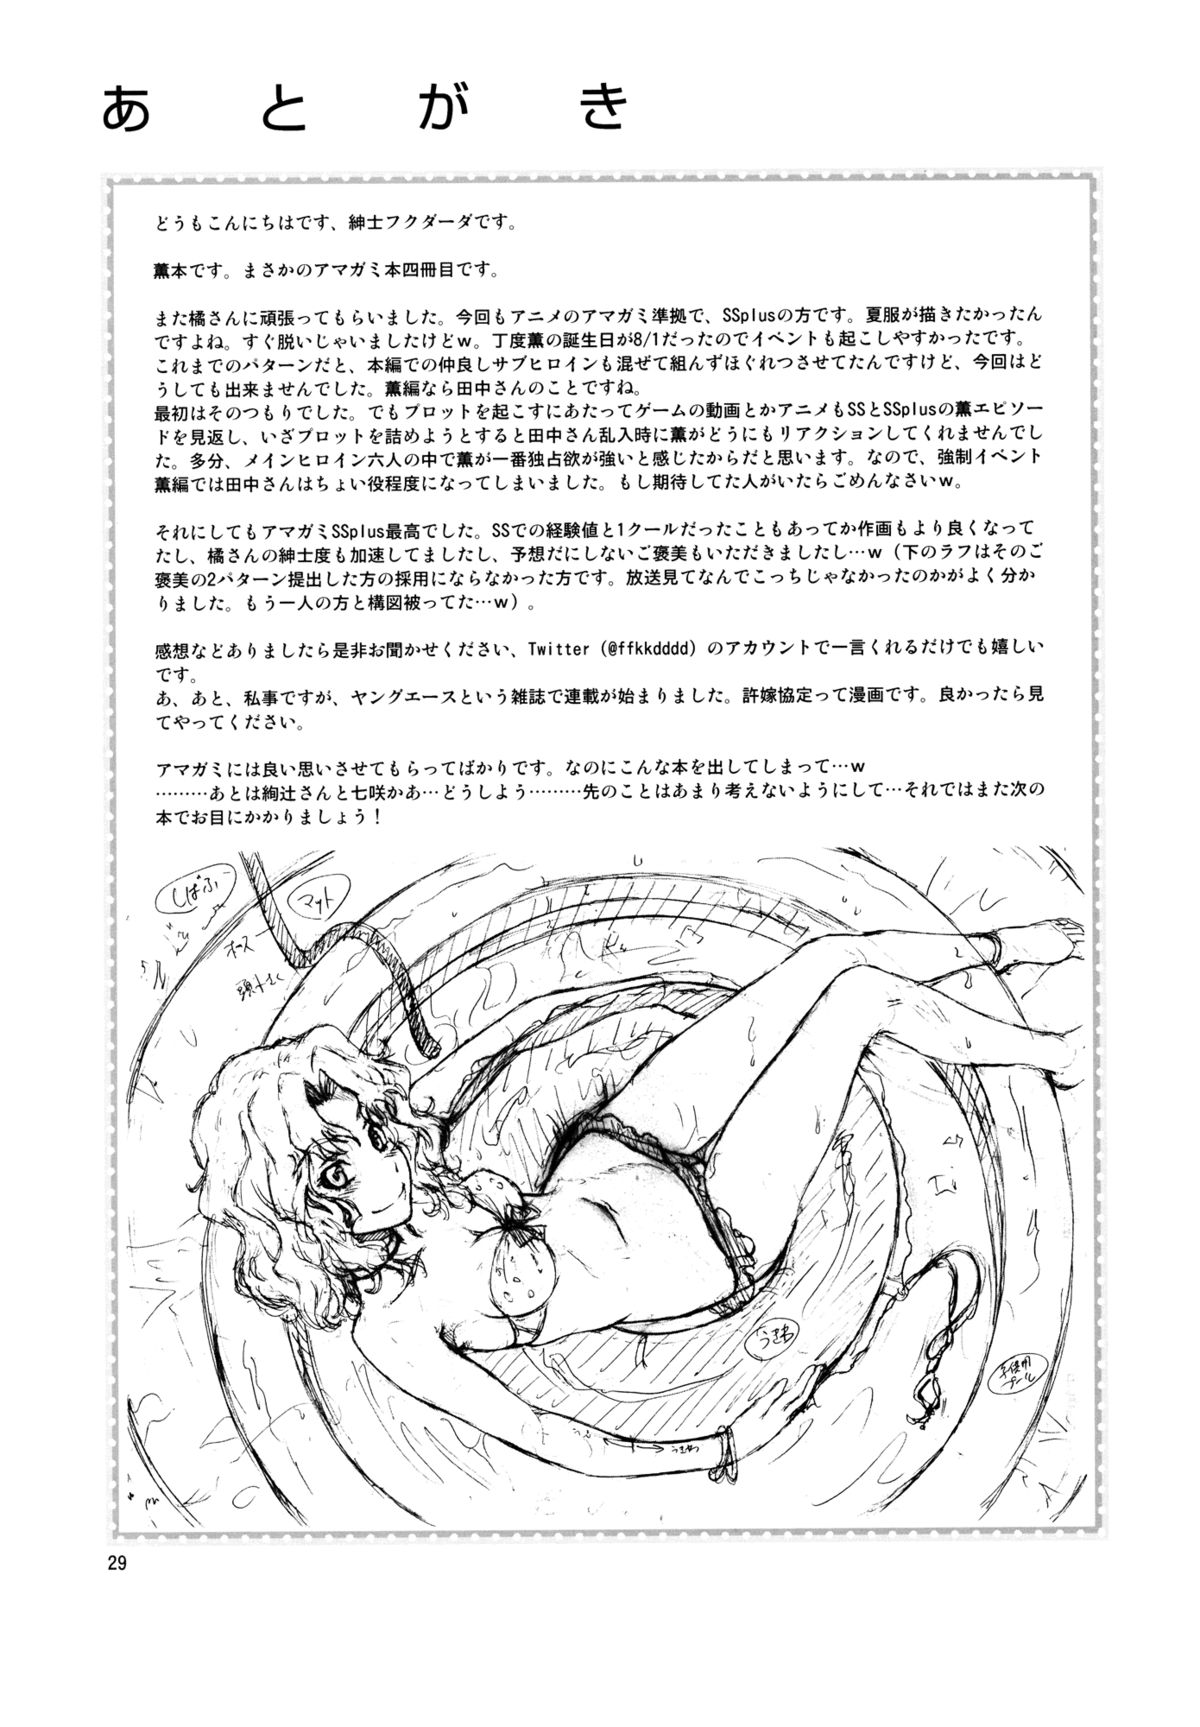 あとがき
どうもこんにちはです、紳士フクダーダです。
薫本です。まさかのアマガミ本四冊目です。
また橘さんに頑張ってもらいました。今回もアニメのアマガミ準拠で、SSplusの方です。夏服が描きたかったん
ですよね。すぐ脱いじゃいましたけどw。丁度薫の誕生日が8/1だったのでイベントも起こしやすかったです。
これまでのパターンだと、本編での仲良しサブヒロインも混ぜて組んずほぐれつさせてたんですけど、今回はど
うしても出来ませんでした。薫編なら田中さんのことですね。
最初はそのつもりでした。でもプロットを起こすにあたってゲームの動画とかアニメもSSとSSplusの薫エピソー
ドを見返し、いざプロットを詰めようとすると田中さん乱入時に薫がどうにもリアクションしてくれませんでし
た。多分、メインヒロイン六人の中で薫が一番独占欲が強いと感じたからだと思います。なので、強制イベント
薫編では田中さんはちょい役程度になってしまいました。もし期待してた人がいたらごめんなさいw。
それにしてもアマガミSSplus最高でした。SSでの経験値と1クールだったこともあってか作画もより良くなって
たし、橘さんの紳士度も加速してましたし、予想だにしないご褒美もいただきましたし…w（下のラフはそのご
褒美の2パターン提出した方の採用にならなかった方です。放送見てなんでこっちじゃなかったのかがよく分か
りました。もう一人の方と構図被ってた…w）。
感想などありましたら是非お聞かせください、Twitter（@ffkkdddd）のアカウントで一言くれるだけでも嬉しい
です。
あ、あと、私事ですが、ヤングエースという雑誌で連載が始まりました。許嫁協定って漫画です。良かったら見
てやってください。
アマガミには良い思いさせてもらってばかりです。なのにこんな本を出してしまって…w
………あとは絢辻さんと七咲かあ…どうしよう………先のことはあまり考えないようにして…それではまた次の
本でお目にかかりましょう！
しばふ
マット
ホース
うきわ
うきわ
プール
29